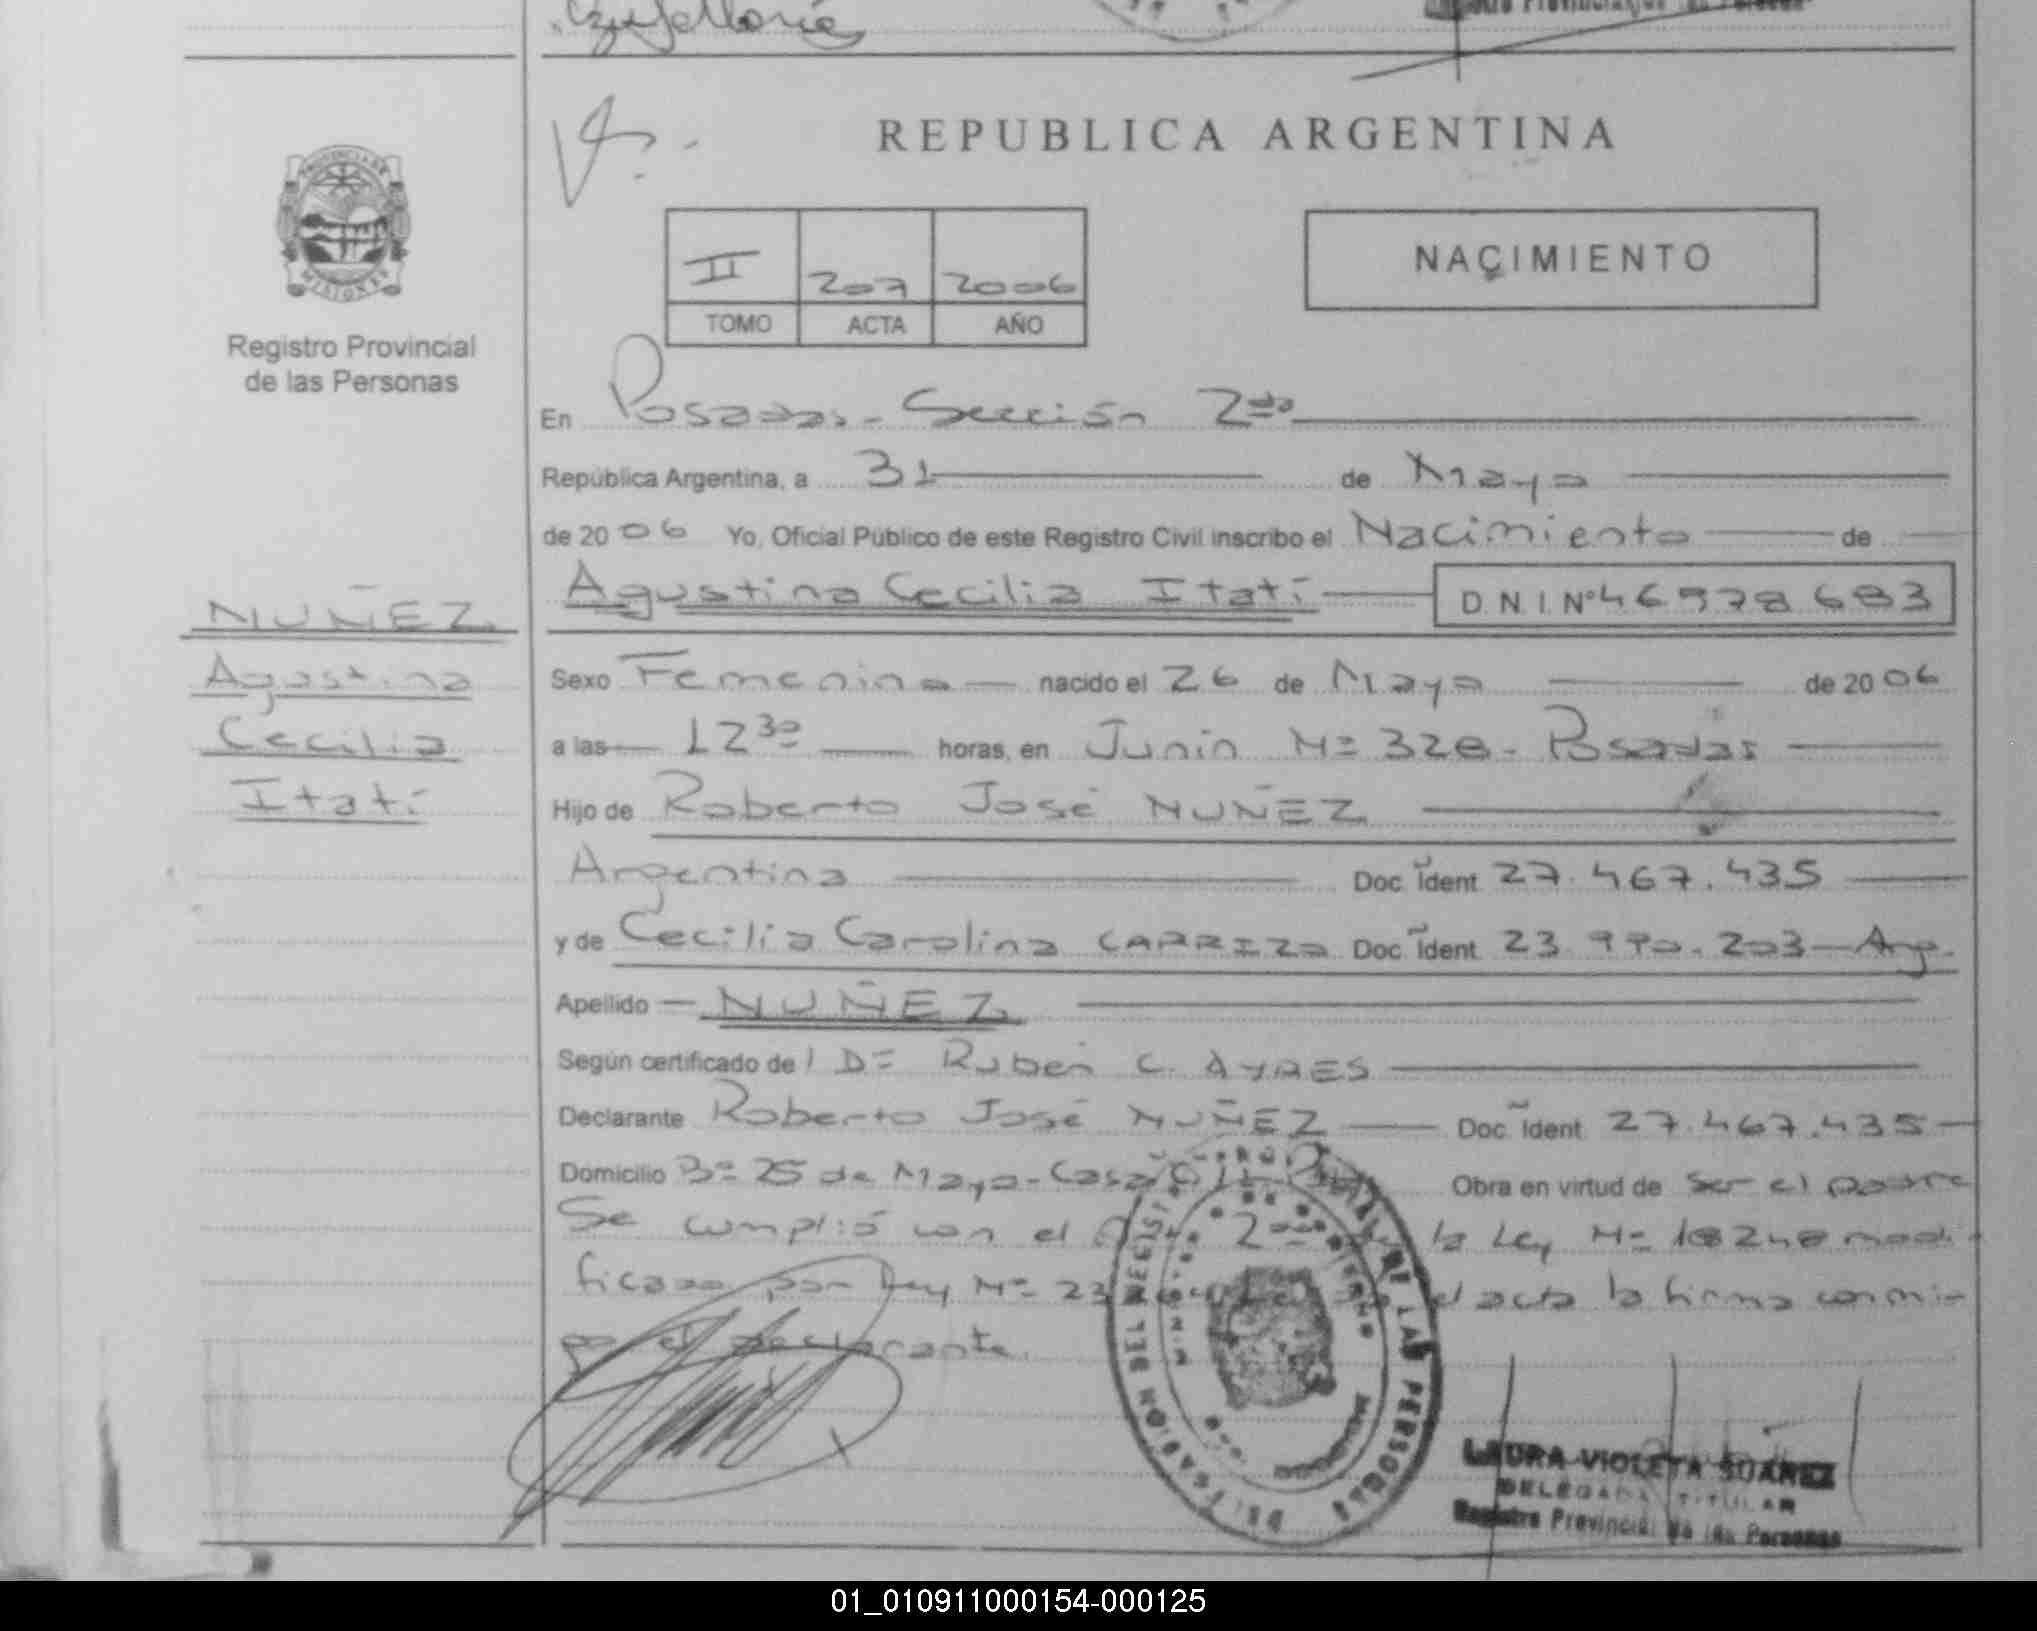 REPUBLICA ARGENTINA
PROVINCIA DE
MISIONES
Registro Provincial
de las Personas
II 207 2006
TOMO ACTA AÑO
NACIMIENTO
En Posadas - Sección 2da
República Argentina, a 31 de Mayo
de 2006 Yo, Oficial Público de este Registro Civil inscribo el Nacimiento de
Agustina Cecilia Itatí D.N.I. Nº 46978683
NUÑEZ
Agustina
Cecilia
Itatí
Sexo Femenino nacido el 26 de Mayo de 2006
a las 12 30 horas, en Junín Nº 328 - Posadas
Hijo de Roberto José NUÑEZ
Argentina Doc Ident 27.467.435
y de Cecilia Carolina CARRIZO Doc Ident 23.990.203 - Arg.
Apellido NUÑEZ
Según certificado de l Dr Ruben C. AYRES
Declarante Roberto José NUÑEZ Doc Ident 27.467.435
Domicilio Bº 25 de Mayo - Casa Obra en virtud de ser el padre
Se cumplió con el la Ley Nº 18248 modi-
ficado por Ley Nº 23 el acta la firma conmi-
go el declarante.
DELEGACION DEL REGISTRO PROVINCIAL DE LAS PERSONAS
2da
LAURA VIOLETA SUAREZ
DELEGADA TITULAR
Registro Provincial de las Personas
01_010911000154-000125